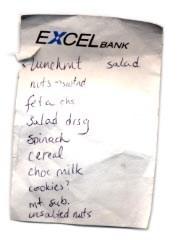 EXCEL BANK
Lunchmt salad
nuts
feta chs
salad drsg
spinach
cereal
choc milk
cookies?
mt sub.
unsalted nuts